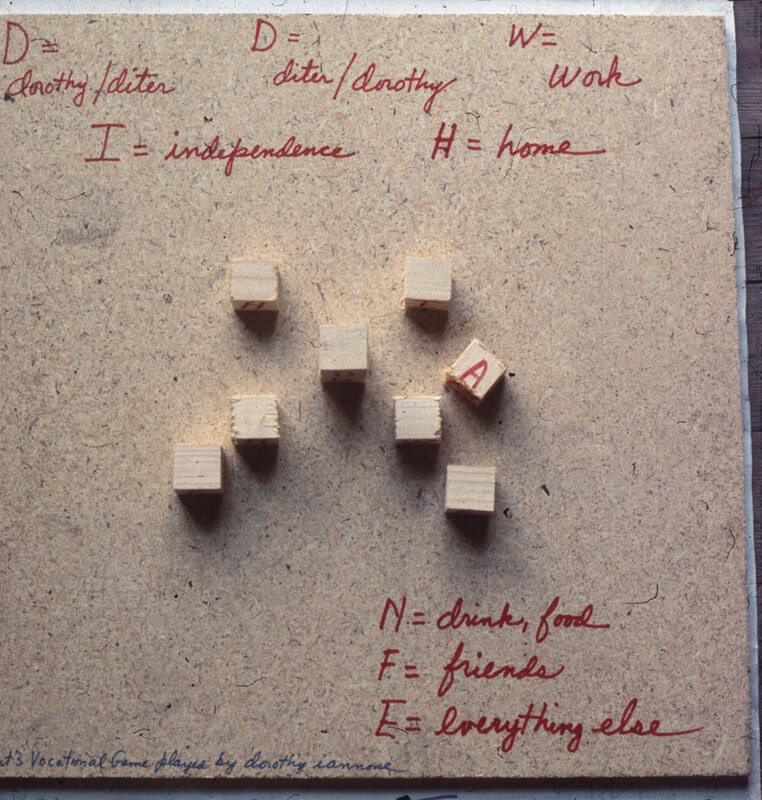 D= D= W=
dorothy/diter diter/dorothy work
I = independence H = home
H
A
N= drink, food
F= friends
E= everything else
Vocational Game played by dorothy iannone